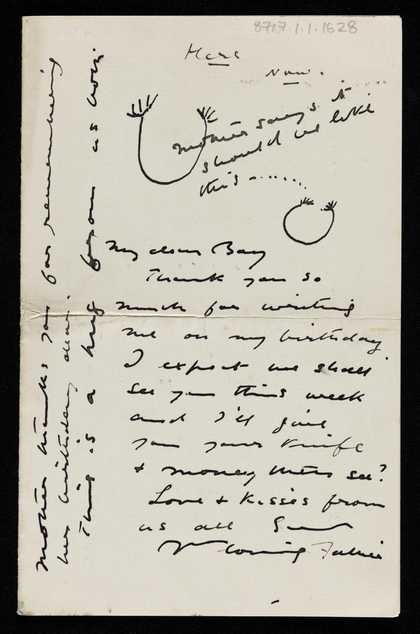 8717.1.1.1628
Here
Now.
Mother says it
should be like
this.......
My dear Boy
Thank you so
much for writing
me on my birthday.
I expect we shall
see you this week
and I'll give
you your knife
& money then see?
Love & kisses from
us all
Yr loving Father
This is a hug from us both
Mother thanks you for remembering
her birthday dear.